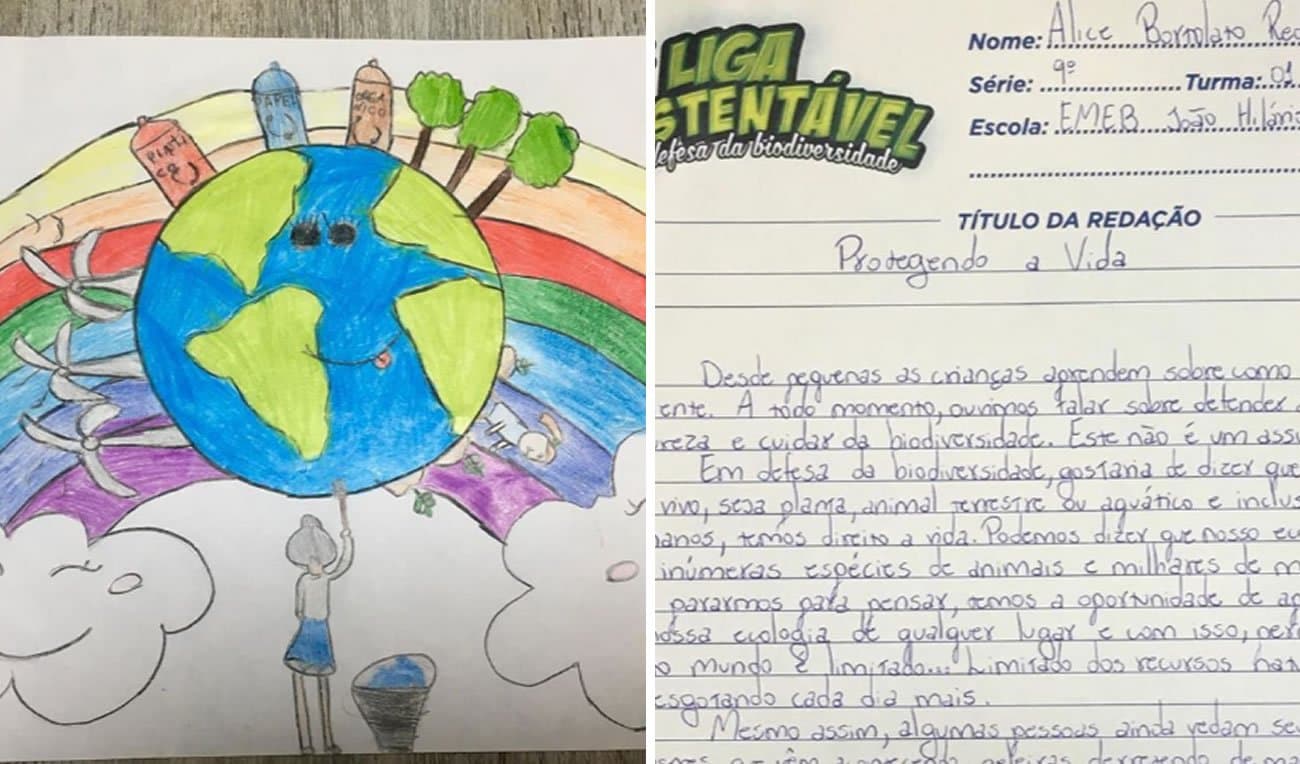 PLÁSTI
CO
PAPEL
ORGÂ
NICO
LIGA
STENTÁVEL
defesa da biodiversidade
Nome: Alice Bortolato
Série: 9º Turma: 01
Escola: EMEB João Hilário
TÍTULO DA REDAÇÃO
Protegendo a Vida
Desde pequenas as crianças aprendem sobre como
ente. A todo momento, ouvimos falar sobre defender
reza e cuidar da biodiversidade. Este não é um assu
Em defesa da biodiversidade, gostaria de dizer que
vivo, seja planta, animal terrestre ou aquático e inclus
anos, temos direito a vida. Podemos dizer que nosso
inúmeras espécies de animais e milhares de
pararmos para pensar, temos a oportunidade de
ossa ecologia de qualquer lugar e com isso,
o mundo é limitado... Limitado dos recursos
esgotando cada dia mais.
Mesmo assim, algumas pessoas ainda vedam